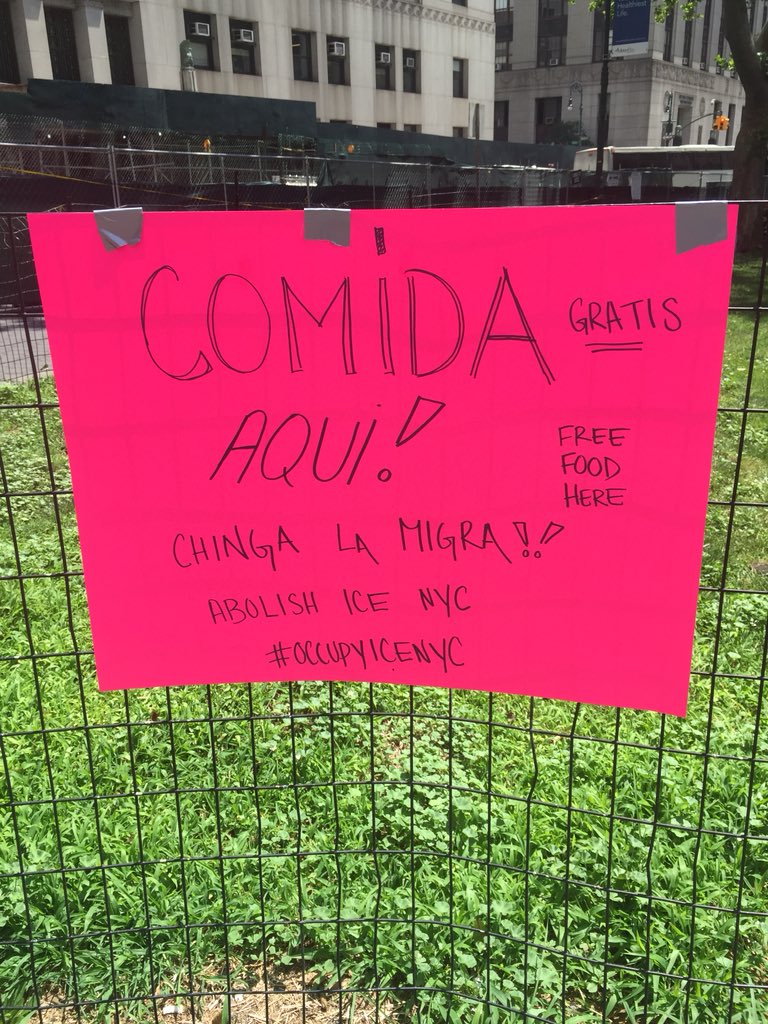 Healthiest
Life.
COMIDA GRATIS
AQUI!
FREE
FOOD
HERE
CHINGA LA MIGRA!!
ABOLISH ICE NYC
#OCCUPYICENYC